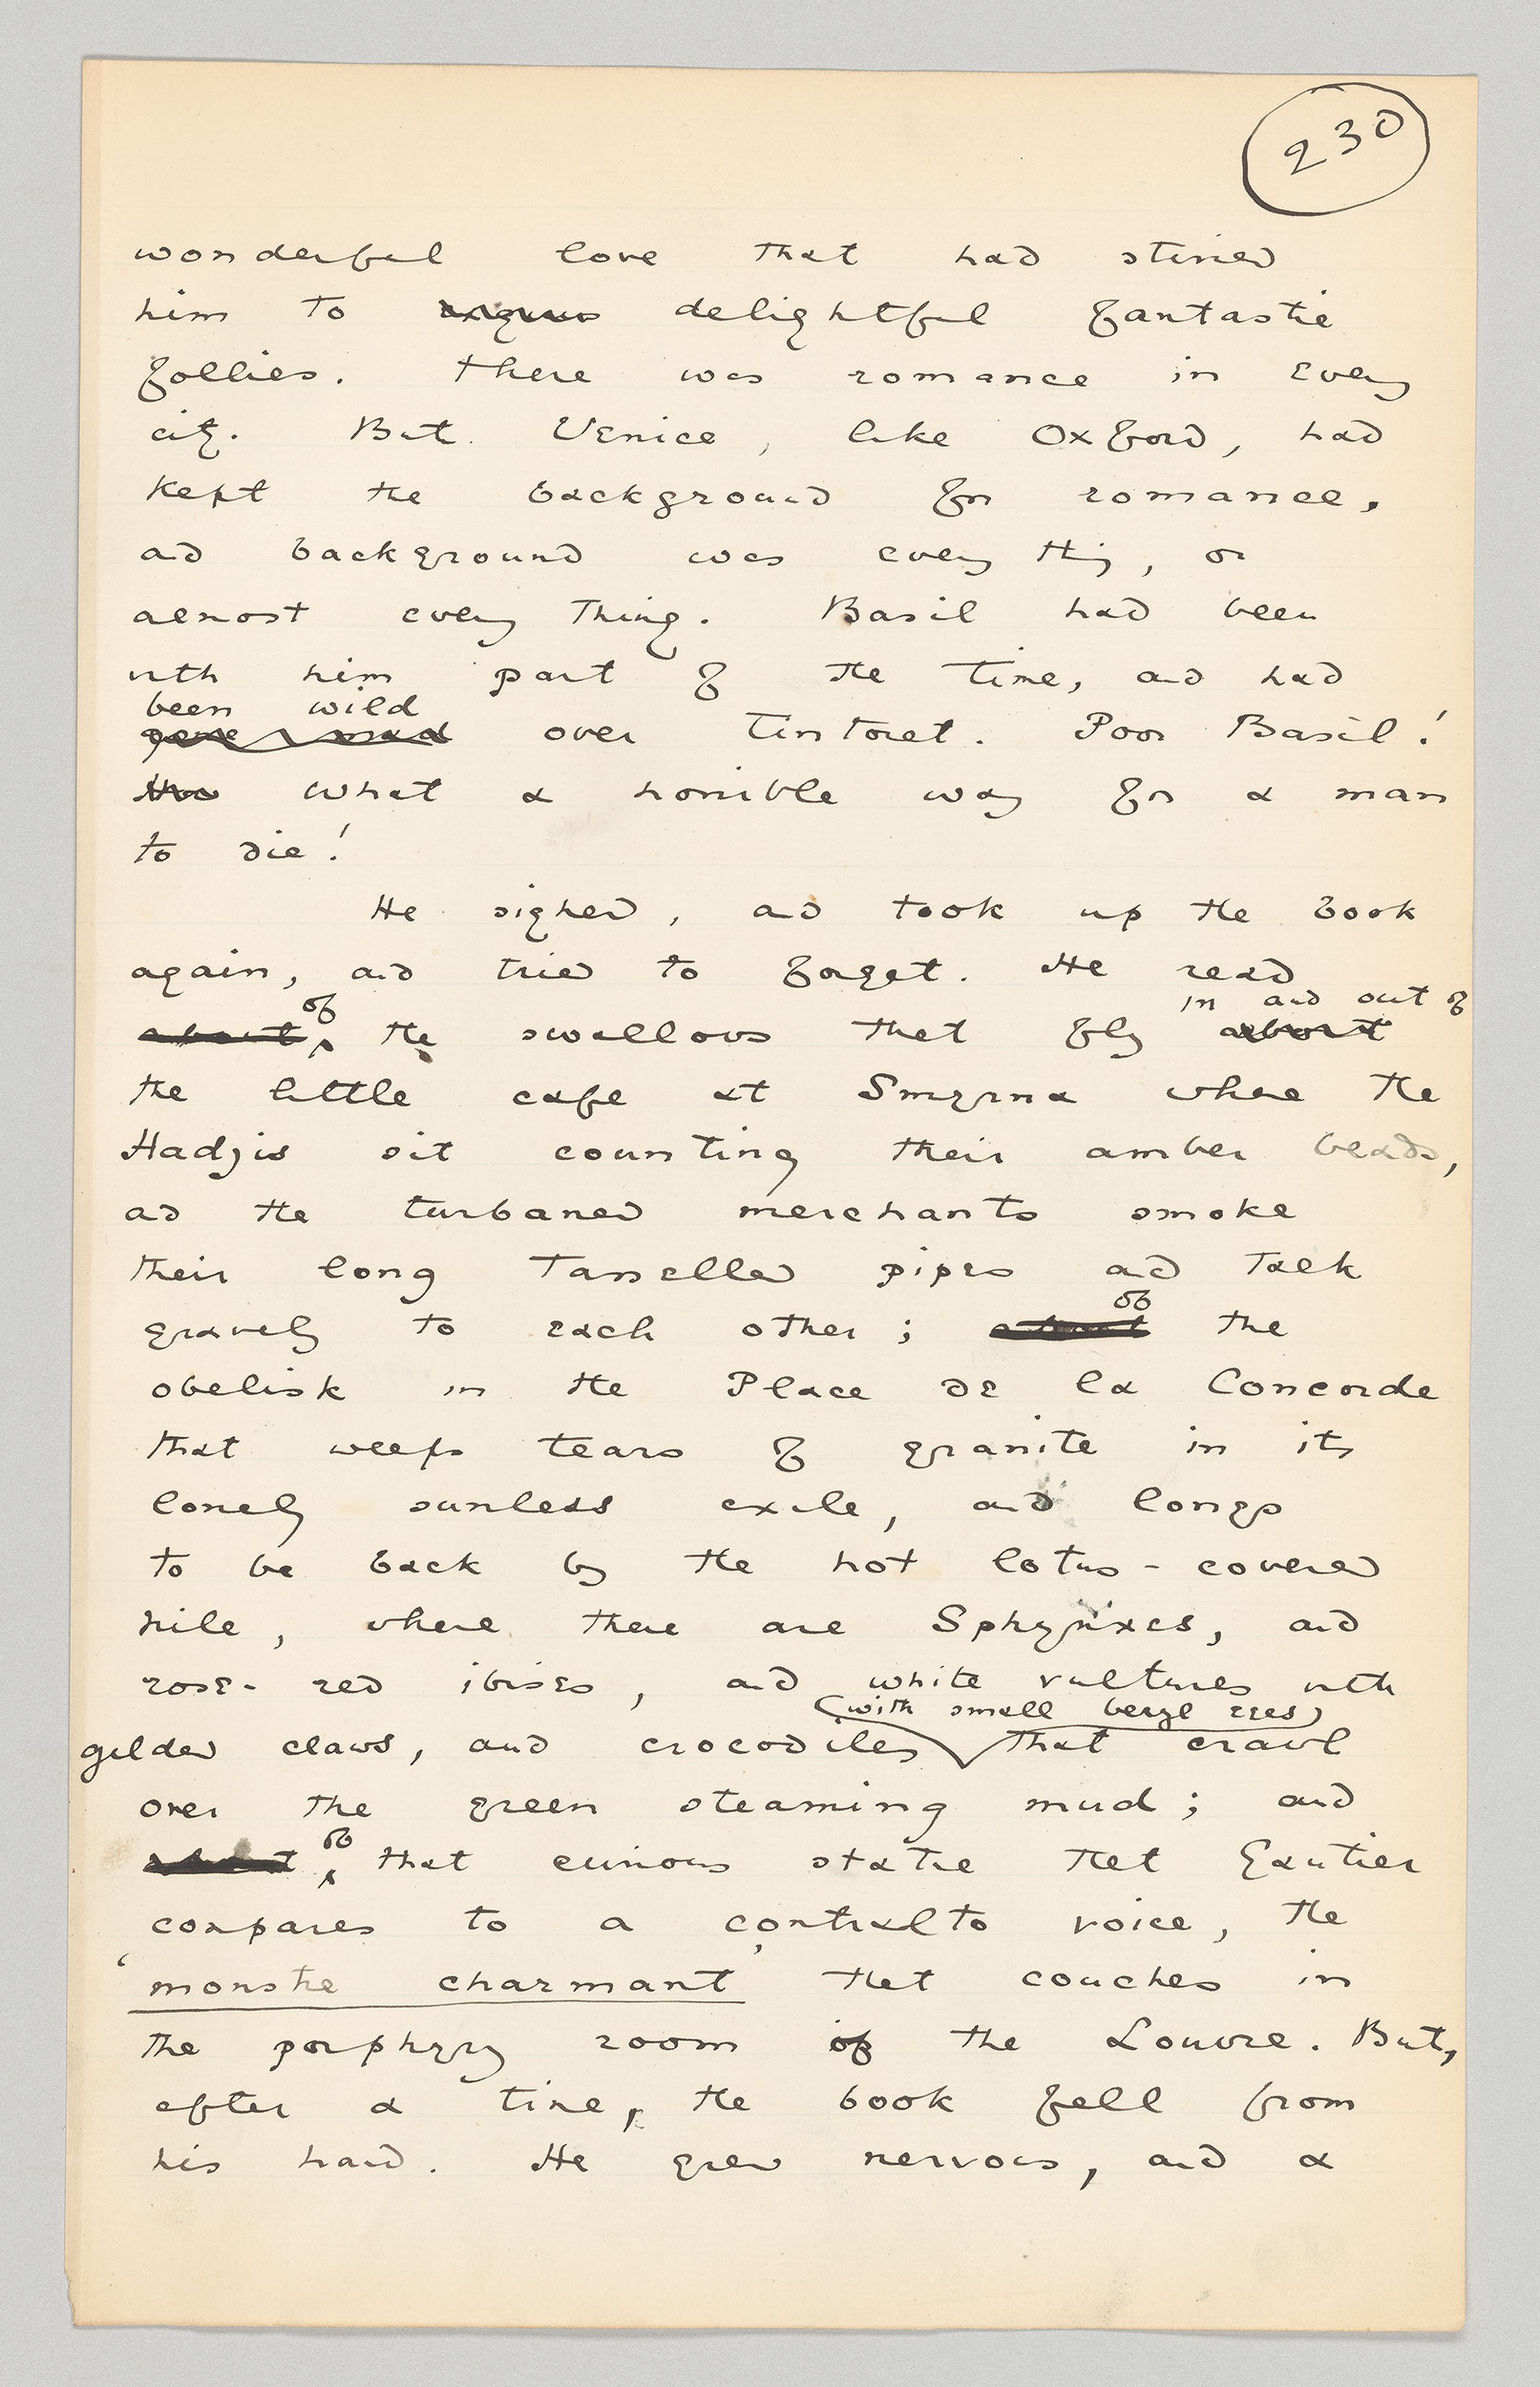 230
wonderful love that had stirred
him to delightful fantastic
follies. There was romance in every
city. But Venice, like Oxford, had
kept the background for romance,
and background was everything, or
almost everything. Basil had been
with him part of the time, and had
been wild
gone mad over Tintoret. Poor Basil!
what a horrible way for a man
to die!
He sighed, and took up the book
again, and tried to forget. He read
of in and out of
about the swallows that fly about
the little cafe at Smyrna where the
Hadjis sit counting their amber beads,
and the turbaned merchants smoke
their long tasselled pipes and talk
of
gravely to each other; about the
obelisk in the Place de la Concorde
that weeps tears of granite in its
lonely sunless exile, and longs
to be back by the hot lotus-covered
Nile, where there are Sphynxes, and
rose-red ibises, and white vultures with
(with small beryl eyes)
gilded claws, and crocodiles that crawl
over the green steaming mud; and
of
about that curious statue that Gautier
compares to a contralto voice, the
'monstre charmant' that couches in
the porphyry room of the Louvre. But,
after a time, the book fell from
his hand. He grew nervous, and a